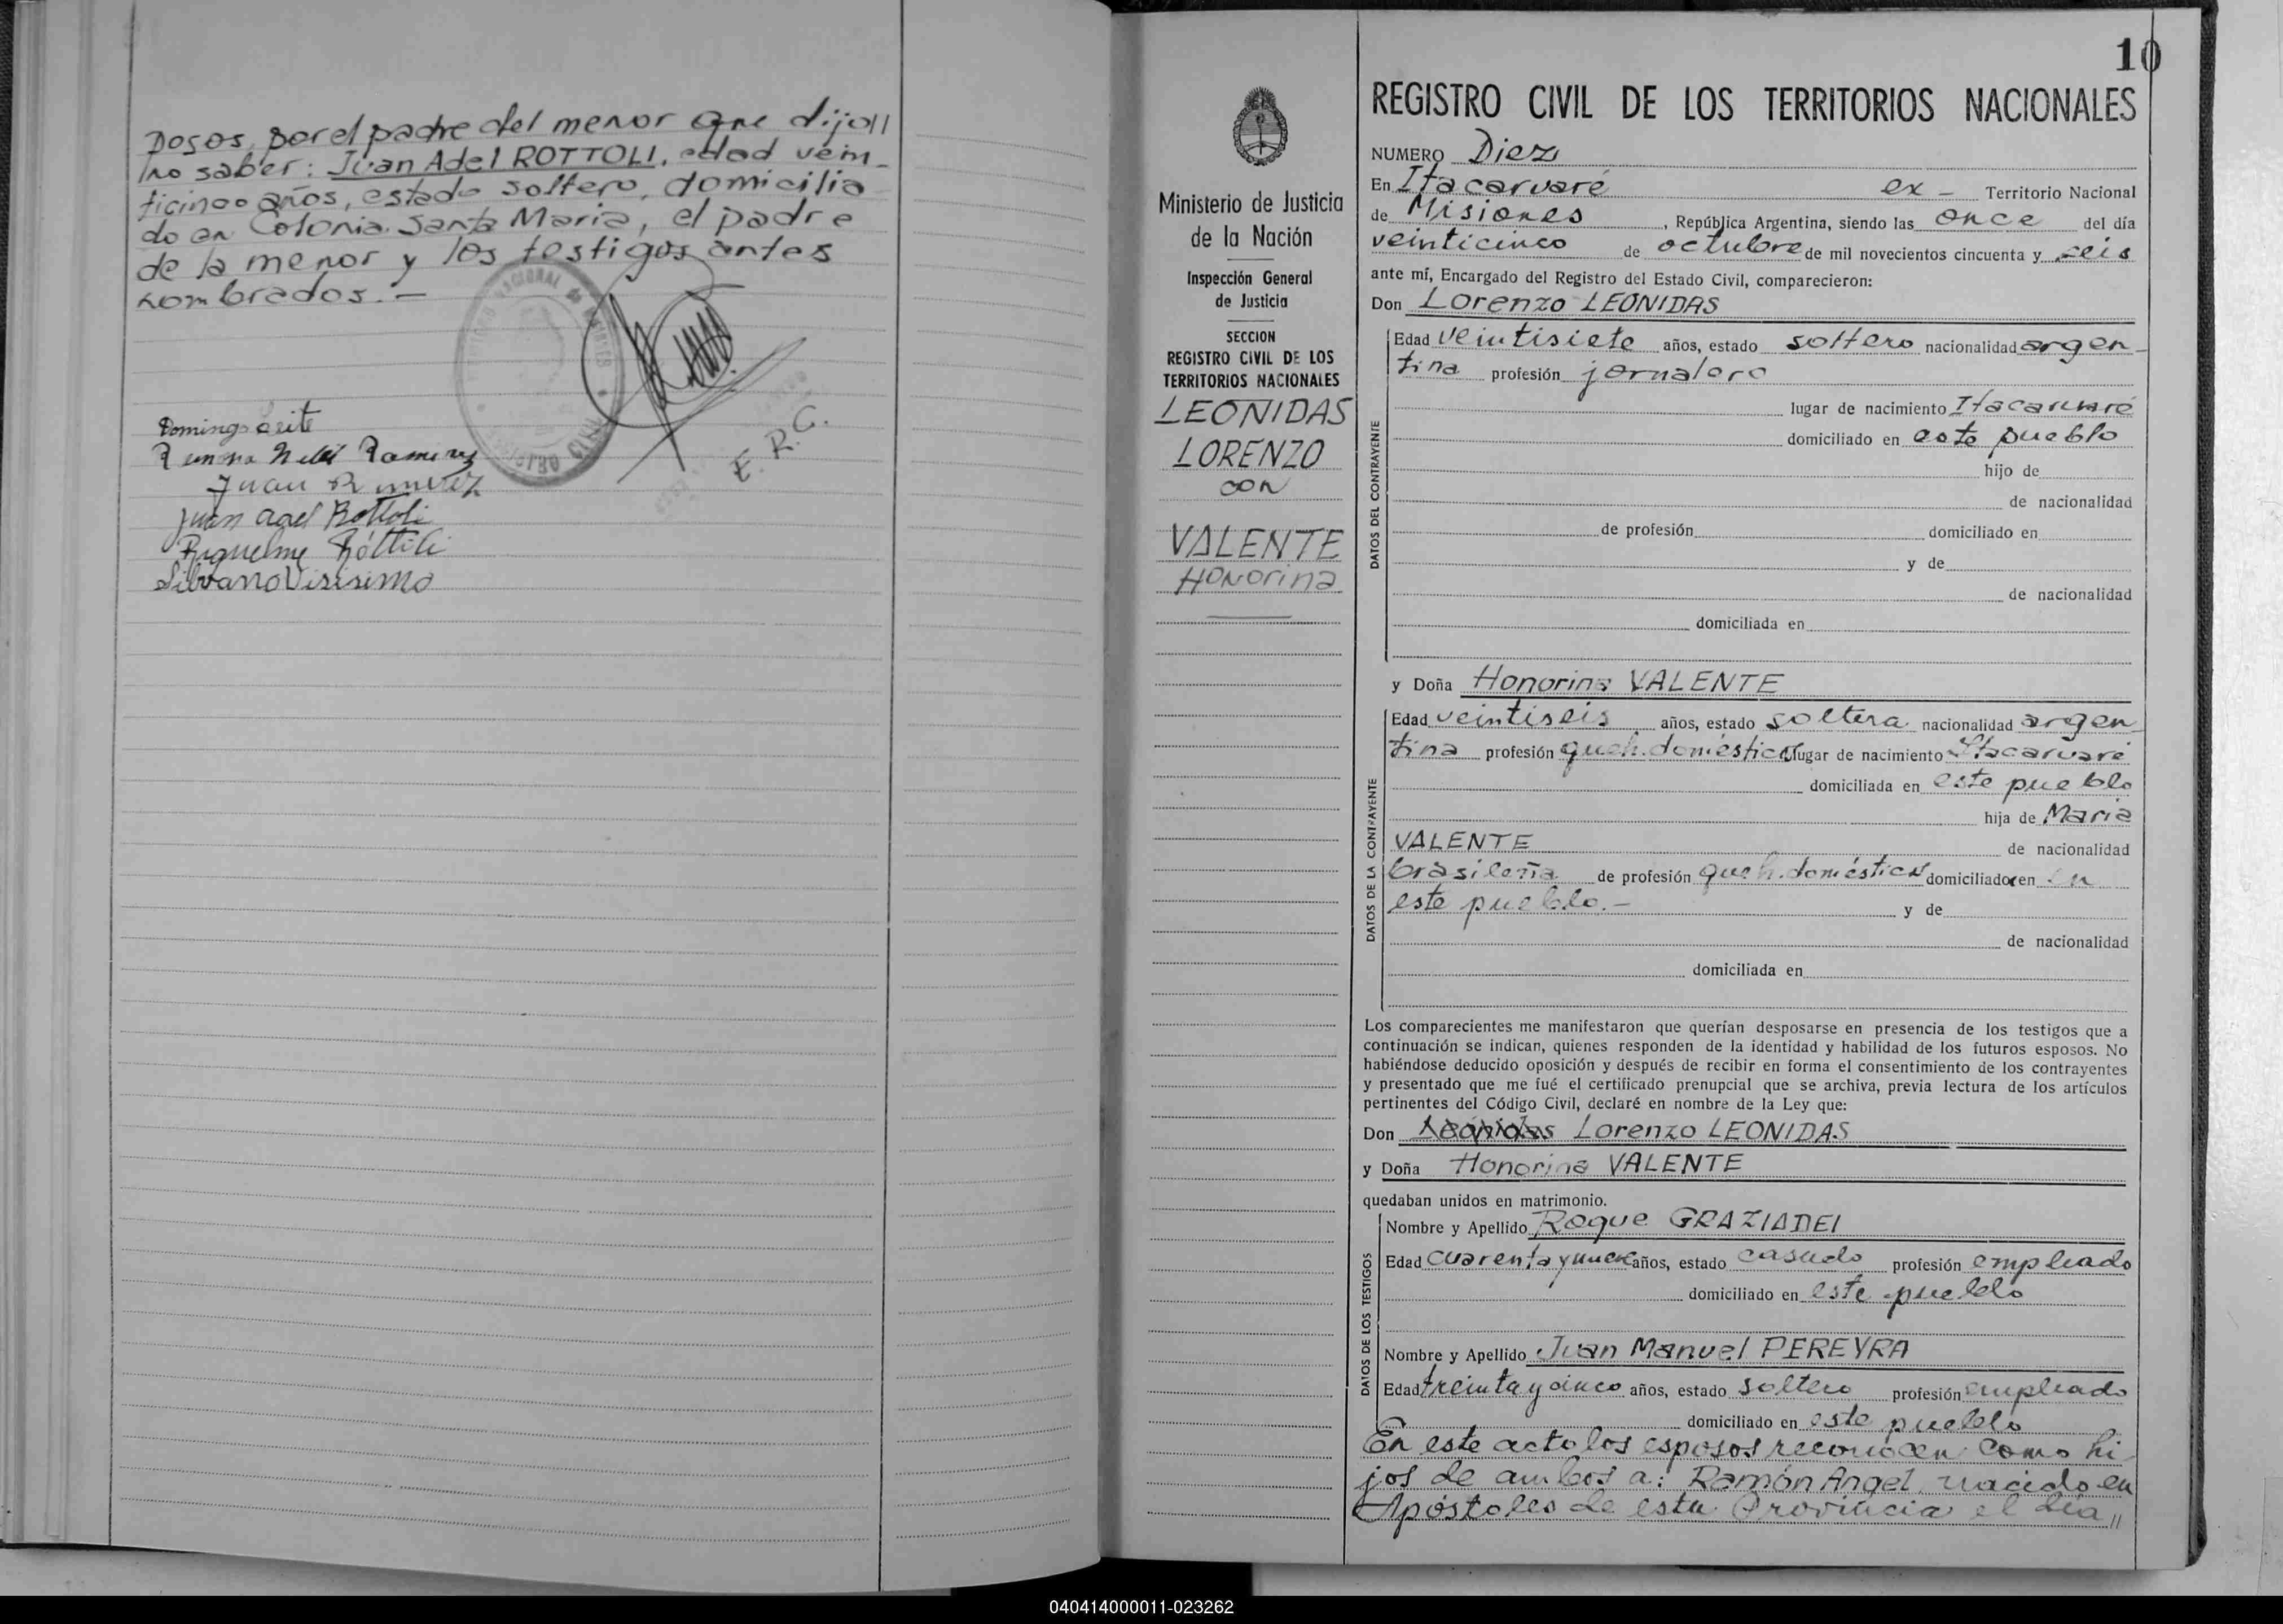 posos, por el padre del menor que dijo //
no saber: Juan Adel ROTTOLI, edad vein-
ticinco años, estado soltero, domicilia
do en Colonia Santa María, el padre
de la menor y los testigos antes
nombrados.-
E. R. C.
Domingo Leite
Ramona Nelli Ramirez
Juan Ramirez
Juan Adel Rottoli
Riquelme Róttili
Silvano Visisimo
10
Ministerio de Justicia
de la Nación
Inspección General
de Justicia
SECCION
REGISTRO CIVIL DE LOS
TERRITORIOS NACIONALES
LEONIDAS
LORENZO
con
VALENTE
Honorina
REGISTRO CIVIL DE LOS TERRITORIOS NACIONALES
NUMERO Diez
En Itacaruaré ex - Territorio Nacional
de Misiones, República Argentina, siendo las once del día
veinticinco de octubre de mil novecientos cincuenta y seis
ante mí, Encargado del Registro del Estado Civil, comparecieron:
Don Lorenzo LEONIDAS
DATOS DEL CONTRAYENTE
Edad veintisiete años, estado soltero nacionalidad argen-
tina profesión jornalero
lugar de nacimiento Itacaruaré
domiciliado en este pueblo
hijo de
de nacionalidad
de profesión domiciliado en
y de
de nacionalidad
domiciliada en
y Doña Honorina VALENTE
DATOS DE LA CONTRAYENTE
Edad veintiseis años, estado soltera nacionalidad argen
tina profesión queh. domésticos lugar de nacimiento Itacaruaré
domiciliada en este pueblo
hija de María
VALENTE de nacionalidad
brasileña de profesión queh. domésticos domiciliado en en
este pueblo.- y de
de nacionalidad
domiciliada en
Los comparecientes me manifestaron que querían desposarse en presencia de los testigos que a
continuación se indican, quienes responden de la identidad y habilidad de los futuros esposos. No
habiéndose deducido oposición y después de recibir en forma el consentimiento de los contrayentes
y presentado que me fué el certificado prenupcial que se archiva, previa lectura de los artículos
pertinentes del Código Civil, declaré en nombre de la Ley que:
Don Leonidas Lorenzo LEONIDAS
y Doña Honorina VALENTE
quedaban unidos en matrimonio.
DATOS DE LOS TESTIGOS
Nombre y Apellido Roque GRAZIADEI
Edad cuarenta y nueve años, estado casado profesión empleado
domiciliado en este pueblo
Nombre y Apellido Juan Manuel PEREYRA
Edad treinta y cinco años, estado soltero profesión empleado
domiciliado en este pueblo
En este acto los esposos reconocen como hi-
jos de ambos a: Ramón Angel, nacido en
Apóstoles de esta Provincia el día //
040414000011-023262